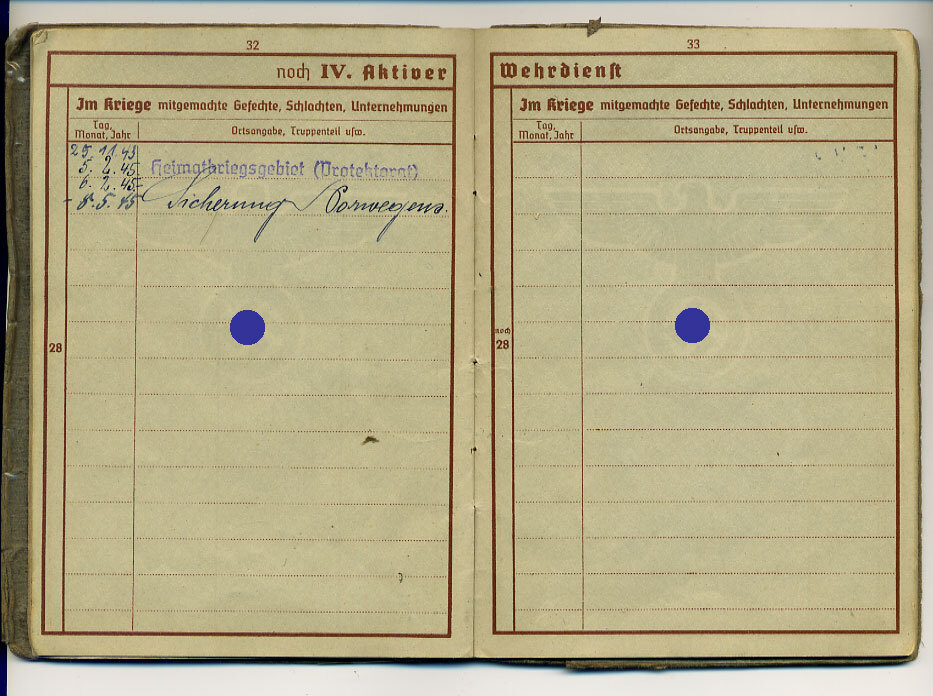 32
noch IV. Aktiver
Im Kriege mitgemachte Gefechte, Schlachten, Unternehmungen
Tag, Monat, Jahr
Ortsangabe, Truppenteil usw.
25.11.43
5. 2. 45.
Heimatkriegsgebiet (Protektorat)
6. 2. 45-
- 8. 5. 45
Sicherung Norwegens.
28
33
Wehrdienst
Im Kriege mitgemachte Gefechte, Schlachten, Unternehmungen
Tag, Monat, Jahr
Ortsangabe, Truppenteil usw.
noch
28